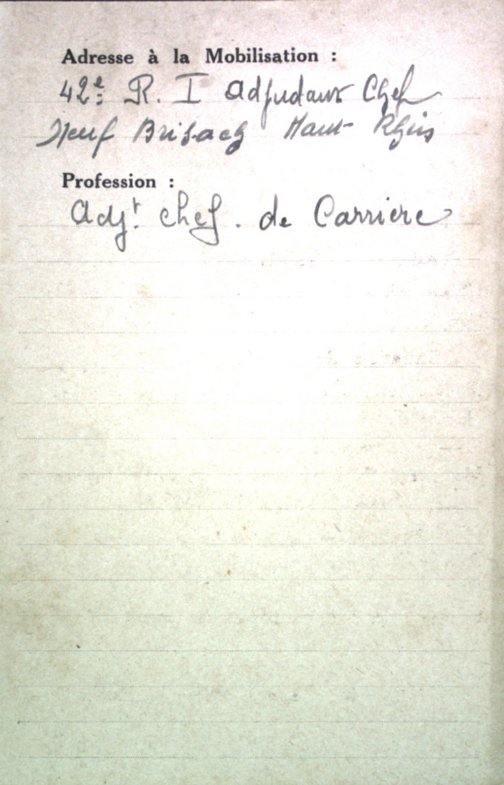 Adresse à la Mobilisation :
42e R. I Adjudant Chef
Neuf Brisach Haut Rhin
Profession :
Adjt chef. de Carrière